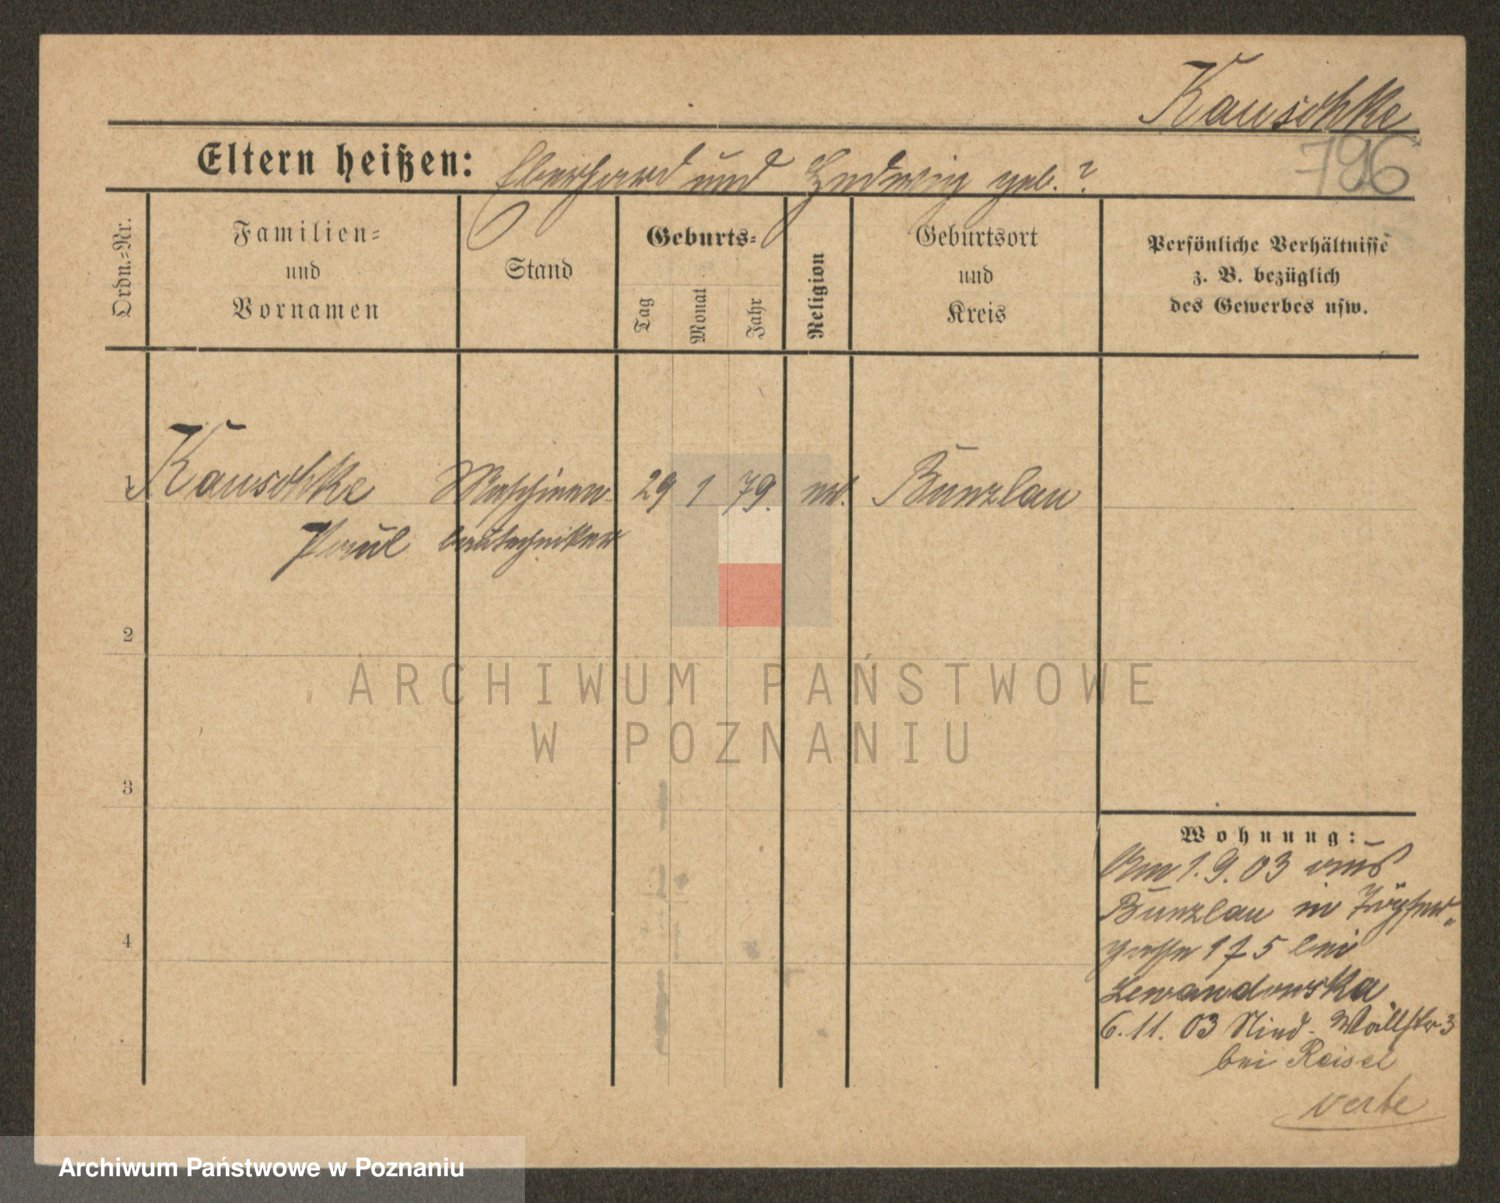 Kauschke
796
Eltern heißen: Eberhard und Hedwig geb. ?
Ordn.-Nr.
Familien-
und
Vornamen
Stand
Geburts-
Tag
Monat
Jahr
Religion
Geburtsort
und
Kreis
Persönliche Verhältnisse
z. B. bezüglich
des Gewerbes usw.
1 Kauschke Maschinen- 29 1 79. ev. Bunzlau
Paul bautechniker
2
3
4
ARCHIWUM PAŃSTWOWE
W POZNANIU
Wohnung:
Am 1. 9. 03 aus
Bunzlau in Töpfer-
gasse 175 bei
Lewandowska
6. 11. 03 Nied. Wallstr 3
bei Reisel
verte
Archiwum Państwowe w Poznaniu